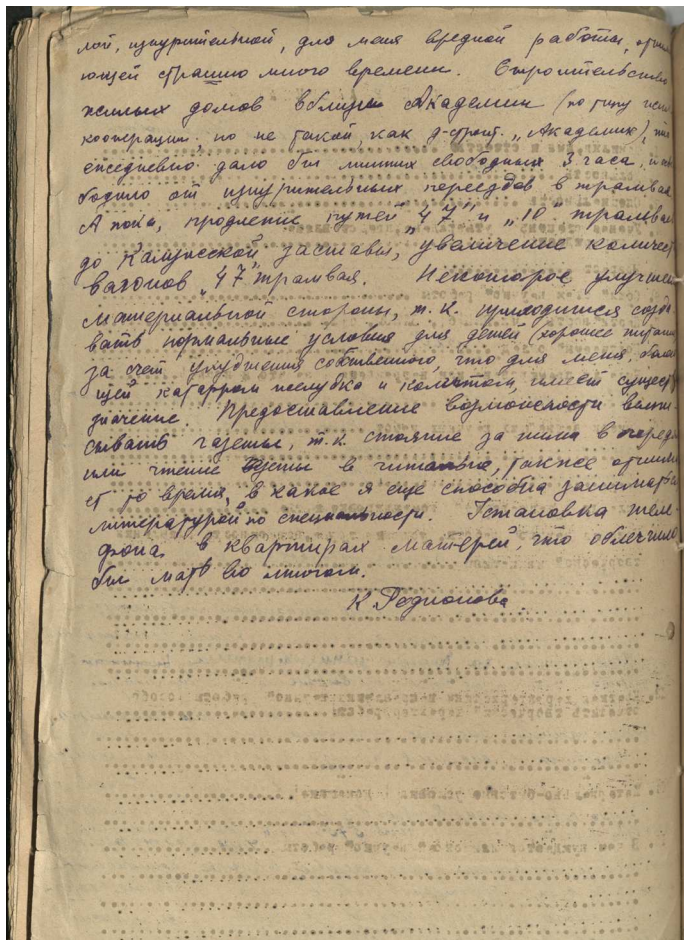 лой, изнурительной, для меня вредной работы, отни
ющей страшно много времени. Строительство
жилых домов вблизи Академии (по типу жил
кооперации, но не такой, как д-строит. „Академик),
ежедневно дало бы лишних свободных 3 часа,
бодило от изнурительных переездов в трамвае
А пока, продление путей „47" и „10" трамвая
до Калужской заставы, увеличение количест
вагонов „47" трамвая. Некоторое улучшен
материальной стороны, т.к. приходится созда
вать нормальные условия для детей (хорошее питани
за счет улудшения собственного, что для меня, болею
щей катарром желудка и колитом, имеет сущест
значение. Предоставление возможности выпи
сывать газеты, т.к. стояние за ними в очереди
или чтение газеты в читальне, также отнима
ет то время, в какое я еще способна заниматься
литературой по специальности. Установка теле
фона в квартирах матерей, что облегчило
бы мать во многом.
К Родионова